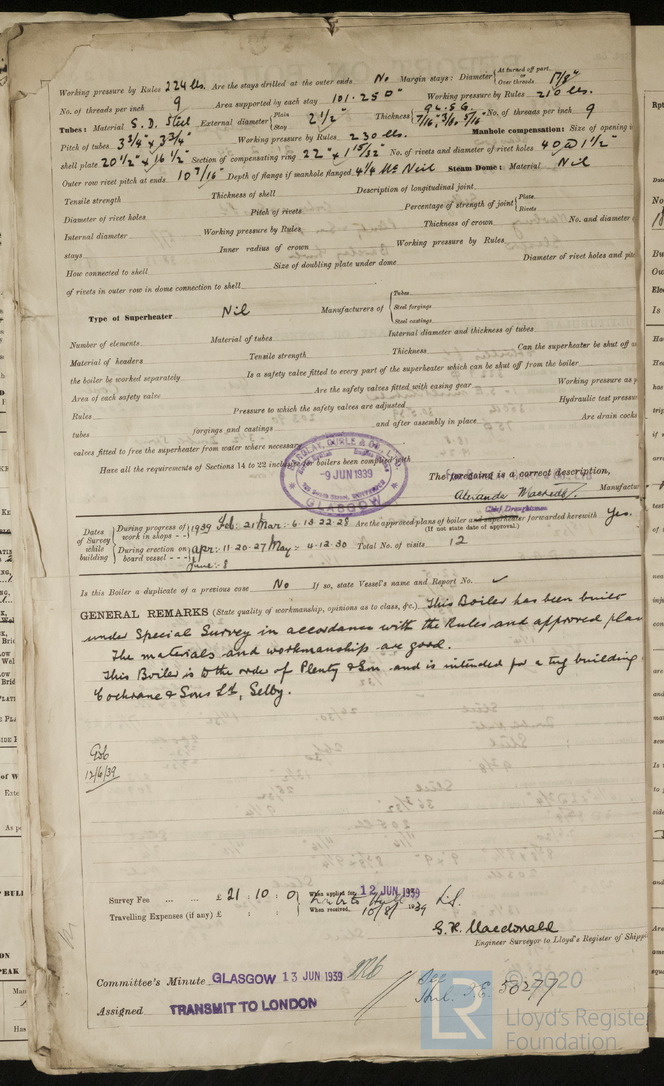 Working pressure by Rules 224 lbs. Are the stays drilled at the outer ends No Margin stays: Diameter { At turned off part, or Over threads 1 7/8"
No. of threads per inch 9 Area supported by each stay 101.25 □" Working pressure by Rules 210 lbs.
Tubes: Material S. D. Steel External diameter { Plain Stay 2 1/2" Thickness { 9 L.S.G. 7/16", 3/8", 5/16" No. of threads per inch 9
Pitch of tubes 3 3/4" x 3 3/4" Working pressure by Rules 230 lbs. Manhole compensation: Size of opening i
shell plate 20 1/2" x 16 1/2" Section of compensating ring 22" x 1 15/32" No. of rivets and diameter of rivet holes 40 @ 1 1/2"
Outer row rivet pitch at ends 10 7/16" Depth of flange if manhole flanged 4 1/4" Steam Dome: Material Nil
Tensile strength Thickness of shell Description of longitudinal joint
Diameter of rivet holes Pitch of rivets Percentage of strength of joint { Plate Rivets
Internal diameter Working pressure by Rules Thickness of crown No. and diameter
stays Inner radius of crown Working pressure by Rules
How connected to shell Size of doubling plate under dome Diameter of rivet holes and pitc
of rivets in outer row in dome connection to shell
Type of Superheater Nil Manufacturers of { Tubes Steel forgings Steel castings
Number of elements Material of tubes Internal diameter and thickness of tubes
Material of headers Tensile strength Thickness Can the superheater be shut off a
the boiler be worked separately Is a safety valve fitted to every part of the superheater which can be shut off from the boiler
Area of each safety valve Are the safety valves fitted with easing gear Working pressure as p
Rules Pressure to which the safety valves are adjusted Hydraulic test pressu
tubes forgings and castings and after assembly in place Are drain cocks
valves fitted to free the superheater from water where necessary
Have all the requirements of Sections 14 to 22 inclusive for boilers been complied with
BARCLAY, CURLE & CO. LTD
-9 JUN 1939
GLASGOW
The foregoing is a correct description,
Alexander Macredo Manufactu
Chief Draughtsman
Dates of Survey while building { During progress of work in shops - - } 1939 Feb: 21 Mar: 6.13.22.28 Are the approved plans of boiler and superheater forwarded herewith Yes.
(If not state date of approval.)
{ During erection on board vessel - - - } Apr: 11.20.27 May: 4.12.30 Total No. of visits 12
June: 8
Is this Boiler a duplicate of a previous case No If so, state Vessel's name and Report No.
GENERAL REMARKS (State quality of workmanship, opinions as to class, &c.) This Boiler has been built
under Special Survey in accordance with the Rules and approved plan
The materials and workmanship are good.
This Boiler is to the order of Plenty & Son and is intended for a tug building
Cochrane & Sons Ltd, Selby.
12/6/39
Survey Fee ... ... £ 21 : 10 : 0 When applied for, 12 JUN 1939
Travelling Expenses (if any) £ : : When received, 10/8/1939
G. R. Macdonald
Engineer Surveyor to Lloyd's Register of Shippi
Committee's Minute GLASGOW 13 JUN 1939
Assigned TRANSMIT TO LONDON
See
Hul. F.E. 50277
LR
© 2020
Lloyd's Register
Foundation